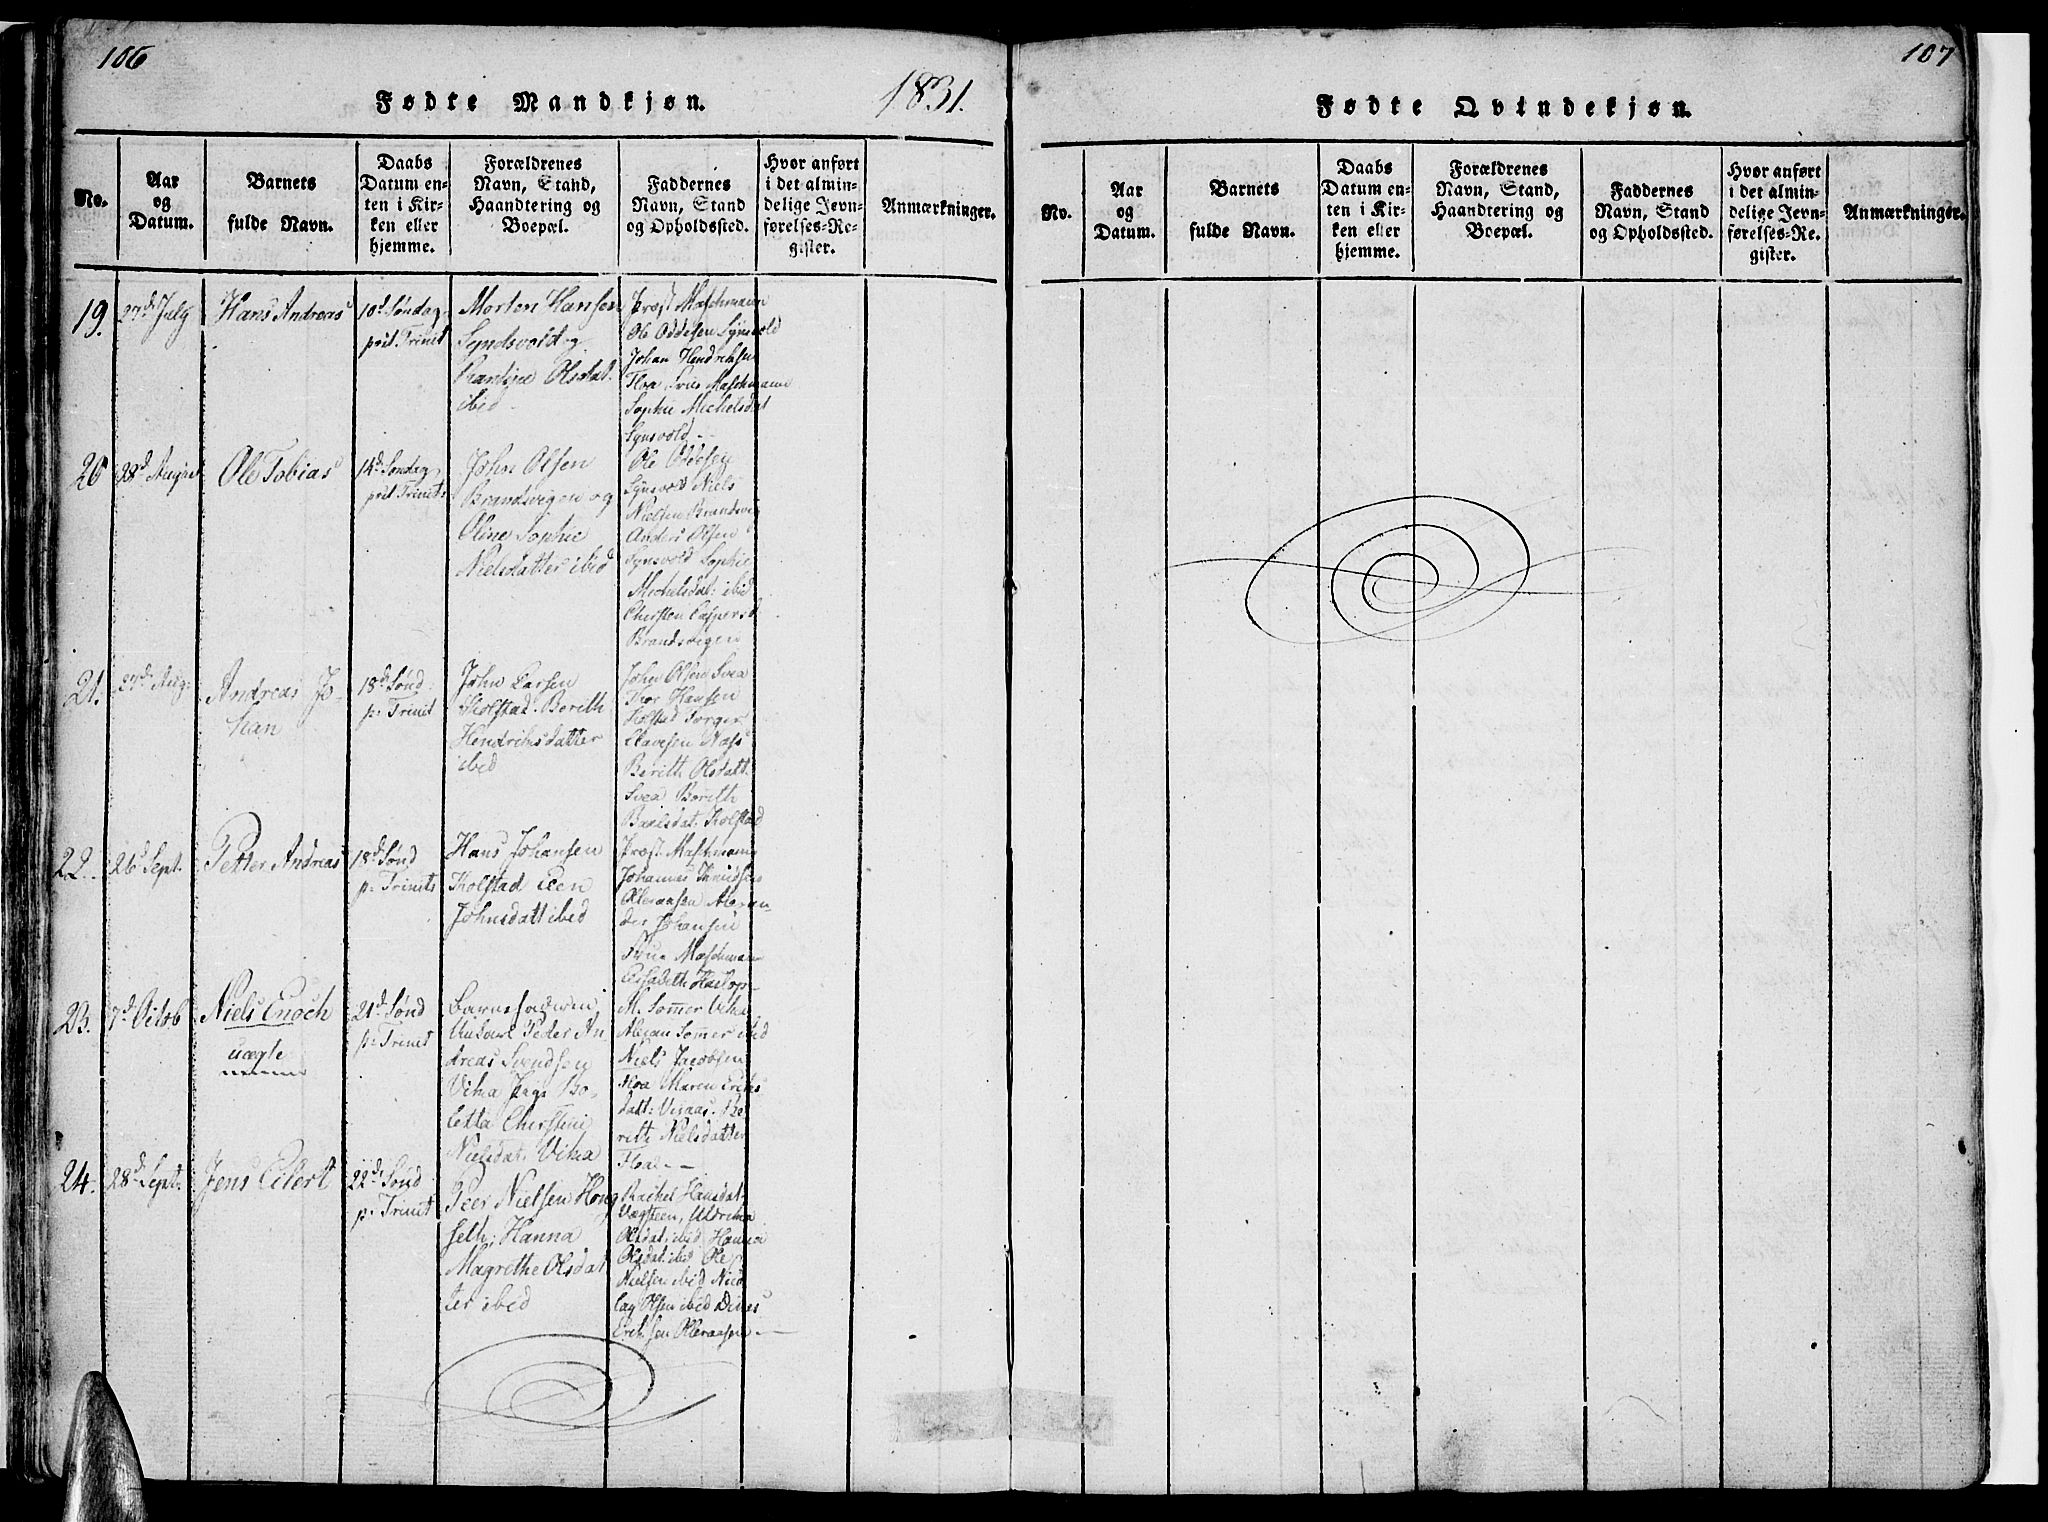 106
1831.
Fødte Mandkjøn.
No.
Aar
og
Datum.
Barnets
fulde Navn.
Daabs
Datum en-
ten i Kir-
ken eller
hjemme.
Forældrenes
Navn, Stand,
Haandtering og
Boepæl.
Faddernes
Navn, Stand
og Opholdssted.
Hvor anført
i det almin-
delige Jevn-
førelses-Re-
gister.
Anmærkninger.
19.
27d July
Hans Andreas
10d Søndag
pst. Trinit
Morten Hansen
Syndsvold og
Olsdat.
ibid
Præst Maschmann
Ole Oddesen Synsvold
Johan Hendriksen
Floa, Frue Maschmann
Sophie Michelsdat
Synsvold
20
28d August
Ole Tobias
14d Søndag
pst Trinits
John Olsen
Brandsvigen og
Oline Sophie
Nielsdatter ibid
Ole Oddesen
Synsvold Niels
Nielsen Brandsvig
Anders Olsen
Synsvold Sophie
Michelsdat: ibid
Chersten Caspersd
Brandsvigen
21.
27d Aug.
Andreas Jo-
han
18d Sønd
p. Trinit
John Larsen
Kolstad. Berith
Hendriksdatter
ibid
John Olsen Svea
Thor Hansen
Kolstad Torger
Olavesen Næss
Berith Olsdatt.
Svea Berith
Kolstad
22.
26d Sept.
Petter Andreas
18d Sønd
p: Trinits
Hans Johansen
Kolstad
Johnsdatt ibid
Præst Maschmann
Johannes
Olderaasen Alexan-
der Johansen
Frue Maschmann
23.
7d Octob
Niels Enoch
uægte
21d Sønd
p: Trinit
Barnefaderen
Unkarl Peder An
dreas Svendsen
Vika Pige Bo-
letta Cherstine
Nielsdat. Vika
M. Sommer Vika
Alexan Sommer ibid
Niels Jacobsen
Floa Maren Eriks
datt: Be
rith Nielsdatter
Floa
24.
28d Sept.
Jens Eilert
22d Sønd
p: Trinit
Peer Nielsen Hong
seth; Hanna
Magrethe Olsdat
ter ibid
Rachel Hansdat
Vægsteen, Uldrika
Olsdat. ibid Hanna
Olsdat. ibid Ole
Nielsen ibid Nico
lay Olsen ibid Dines
Erichsen Olderaasen
107
Fødte Qvindekjøn.
No.
Aar
og
Datum.
Barnets
fulde Navn.
Daabs
Datum en-
ten i Kir-
ken eller
hjemme.
Forældrenes
Navn, Stand,
Haandtering og
Boepæl.
Faddernes
Navn, Stand
og Opholdssted.
Hvor anført
i det almin-
delige Jevn-
førelses-Re-
gister.
Anmærkninger.